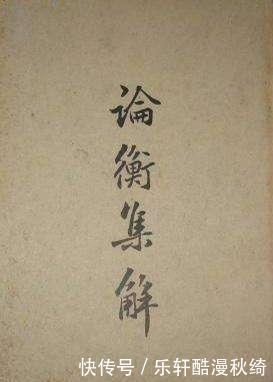 論衡集解
快传号/乐轩酷漫秋绮